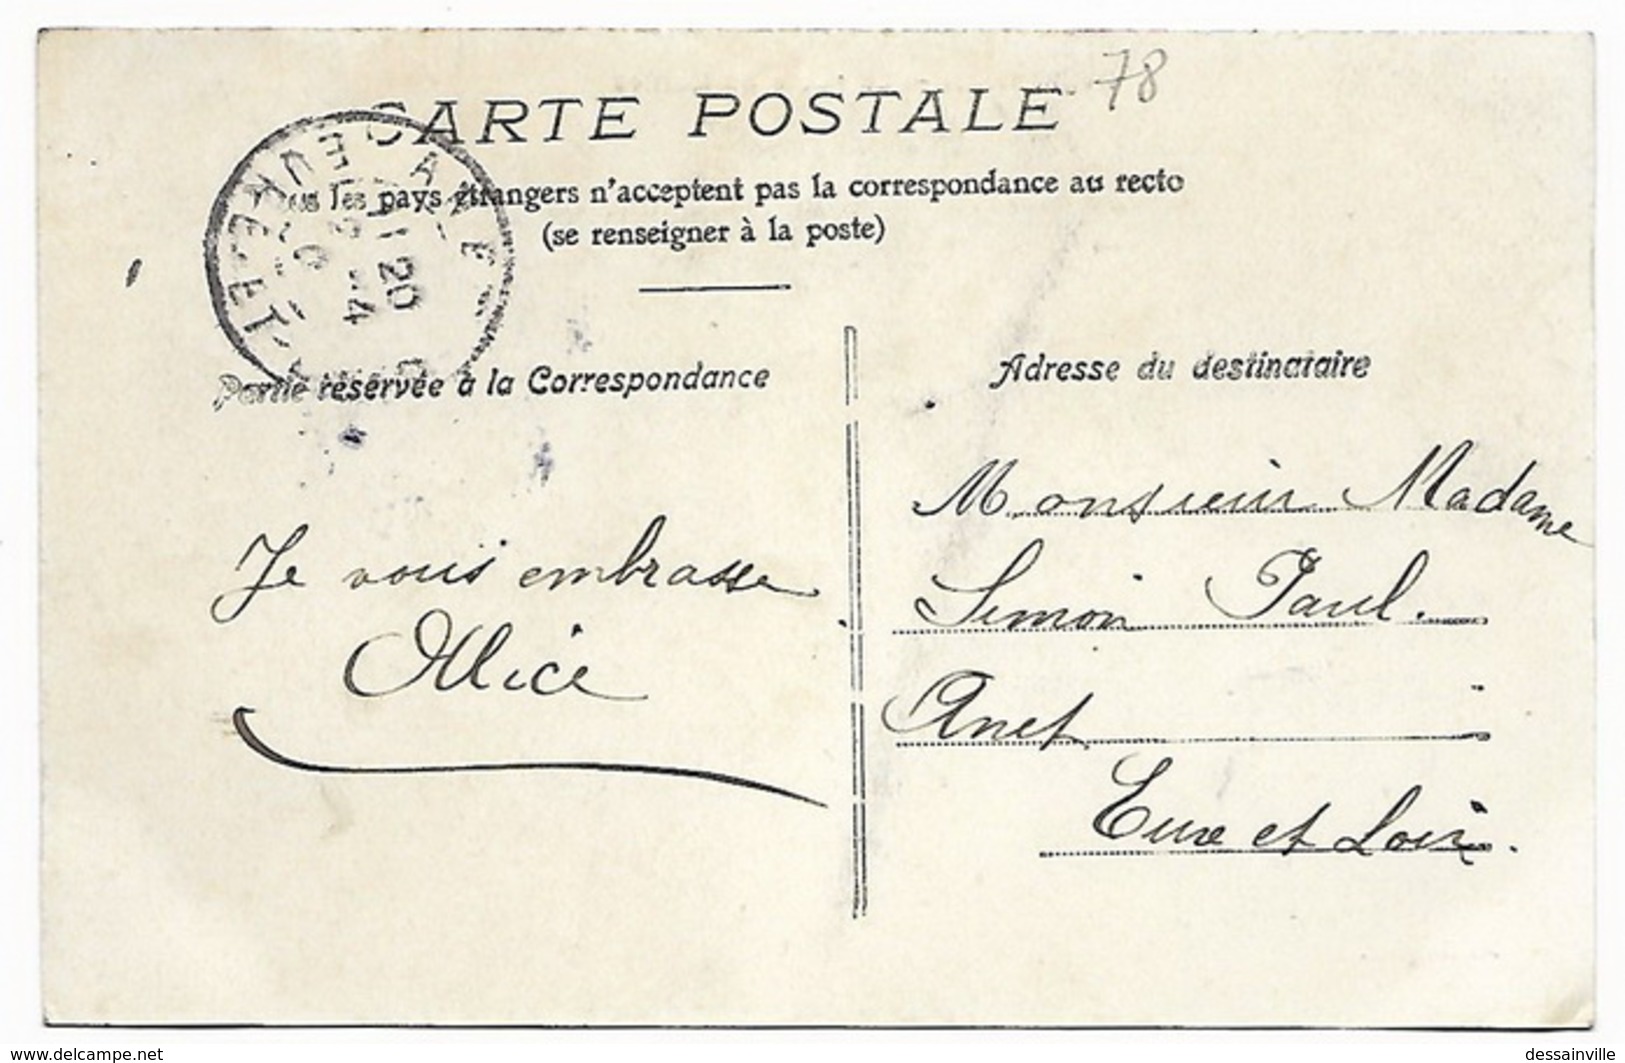 78
CARTE POSTALE
les pays étrangers n'acceptent pas la correspondance au recto
(se renseigner à la poste)
11 20
Partie réservée à la Correspondance
Adresse du destinataire
Je vous embrasse
Alice
Monsieur Madame
Simon Paul.
Anet
Eure et Loir.
www.delcampe.net
dessainville